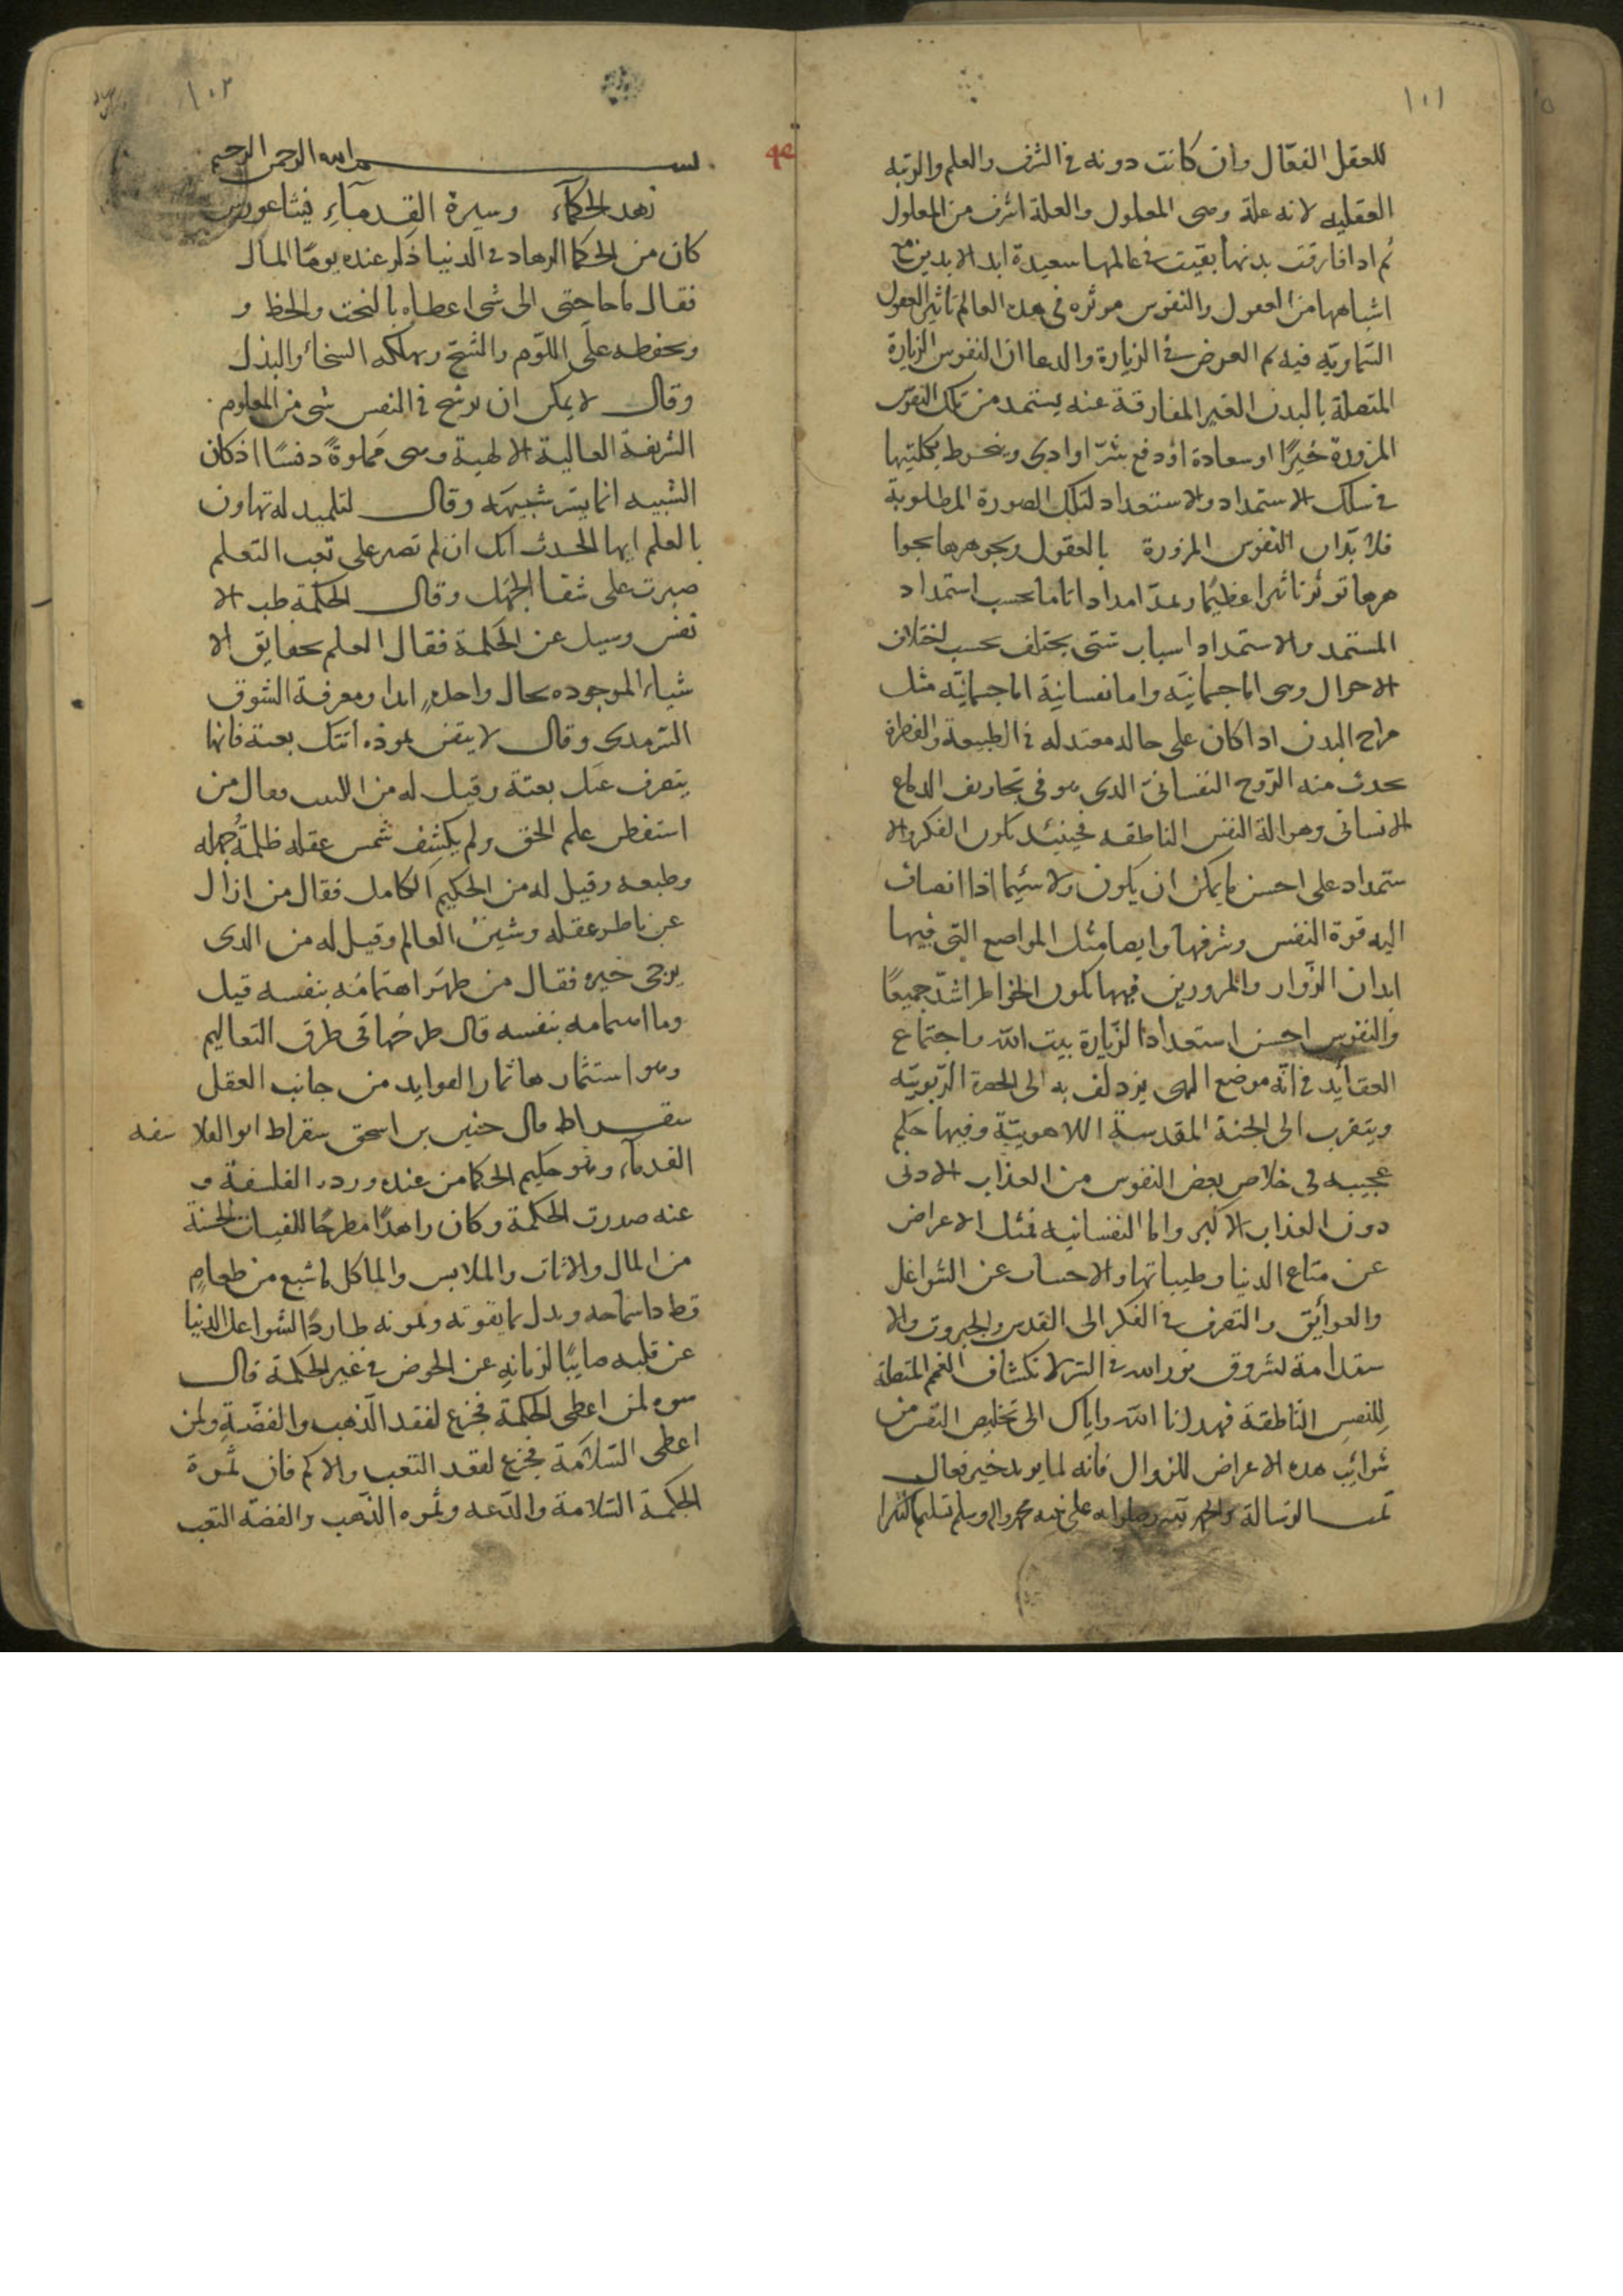 ١٠١
للعقل الفعّال وان كانت دونه في الشرف والعلم والرتبه
العقليه لانه علة وهى المعلول والعلة اشرف من المعلول
ثم اذا فارقت بدنها بقيت في عالمها سعيدة ابد الابدين مع
اشباهها من العقول والنفوس موثره في هذه العالم تاثير العقول
السّماويّه فيه ثم الغرض في الزيارة والدعا ان النفوس الزايرة
المتصلة بالبدن الغير المفارقة عنه يستمد من تلك النفوس
المزورة خيرًا او سعادة او دفع شرّ او اذى وينخرط بكليتها
في سلك الاستمداد والاستعداد لتلك الصورة المطلوبة
فلا بدّ ان النفوس المزورة بالعقول وبجوهرها بجوا
هرها توثر تاثيرا عظيمًا وتمدّ امدادا تاما بحسب استمداد
المستمد والاستمداد اسباب شتى يختلف بحسب اختلاف
الاحوال وهى اما جسمانيّه واما نفسانية اما جسمانيّه مثل
مزاج البدن اذا كان على حاله معتدله في الطبيعة والفطرة
يحدث منه الرّوح النفسانى الذى هو في تجاويف الدماغ
الانسانى وهو الة النفس الناطقه فحينئذ يكون الفكر والا
ستمداد على احسن ما يمكن ان يكون ولا سيّما اذا انضاف
اليه قوة النفس وشرفها وايضا مثل المواضع التى فيها
ابدان الزوّار والمزورين فيها تكون الخواطر اشدّ جميعًا
والنفوس احسن استعدادا لزيارة بيت الله واجتماع
العقايد في انّه موضع الهى يزدلف به الى الحضرة الرّبوبيّه
ويتقرب الى الجنة المقدسة اللاهوتيّة وفيها حكم
عجيبه في خلاص بعض النفوس من العذاب الادنى
دون العذاب الاكبر واما النفسانيه فمثل الاعراض
عن متاع الدنيا وطيباتها والاجتناب عن الشواغل
والعوائق والتصرف في الفكر الى القدس والجبروت والا
ستدامة لشروق نور الله في السّر لانكشاف الغم المتصلة
للنفس النّاطقة فهدانا الله واياك الى تخليص النفس من
شوائب هذه الاعراض للزوال فانه لما يريد خير فعال
تمت الرسالة والحمد لله وصلواته على نبيه محمد واله وسلم تسليما كثيرا
٩٤
١٠٢
بسم الله الرحمن الرحيم
زهد الحكمآء وسيرة القدمآءِ فيثاغورس
كان من الحكما الزهاد في الدنيا ذكر عنده يومًا المال
فقال ما حاجتى الى شى اعطاه بالبخت والحظ و
ويحفظه على اللّوم والشحّ ويهلكه السخاء والبذل
وقال لا يمكن ان يرسخ في النفس شى من العلوم
الشريفة العالية الالهية وهى مملوةً دنسًا اذ كان
الشبيه انما يتبر شبيهه وقال لتلميذ له تهاون
بالعلم ايها الحدث انك ان لم تصبر على تعب التعلم
صبرت على شقا الجهل وقال الحكمة طب الا
نفس وسيل عن الحكمة فقال العلم بحقايق الا
شياء الموجوده بحال واحدٍ ابدا ومعرفة الشوق
السّرمدى وقال لا يثقن بمودة أتتك بغتة فانها
ينصرف عنك بغتة وقيل له من اللبيب فقال من
استفطن علم الحق ولم يكشف شمس عقله ظلمةُ جهله
وطبعه وقيل له من الحكيم الكامل فقال من ازال
عن ناظر عقله وشينُ العالم وقيل له من الذى
يرجى خيره فقال من ظهر اهتمامُه بنفسه قيل
وما اهتمامه بنفسه قال طرحها في طرق التعاليم
وهو استثمارها ثمار الفوايد من جانب العقل
سقراط قال حنين بن اسحق سقراط ابو الفلا سفه
القدماء وهو حكيم الحكما من عنده ورد الفلسفة و
عنه صدرت الحكمة وكان زاهدًا مطرحًا للقينات الحسنة
من المال والاثاث والملابس والماكل ما شبع من طعامٍ
قط وبذل ما يقوته ويمونه طاردًا الشواغل الدنيا
عن قلبه صاينًا لزمانهِ عن الخوض في غير الحكمة قال
سوه لمن اعطى الحكمة فجزع لفقد الذّهب والفضّةِ ولمن
اعطى السّلامة فجزع لفقد التعب والالم فان ثمرة
الحكمة السّلامة والدّعه وثمره الذّهب والفضّه التعب